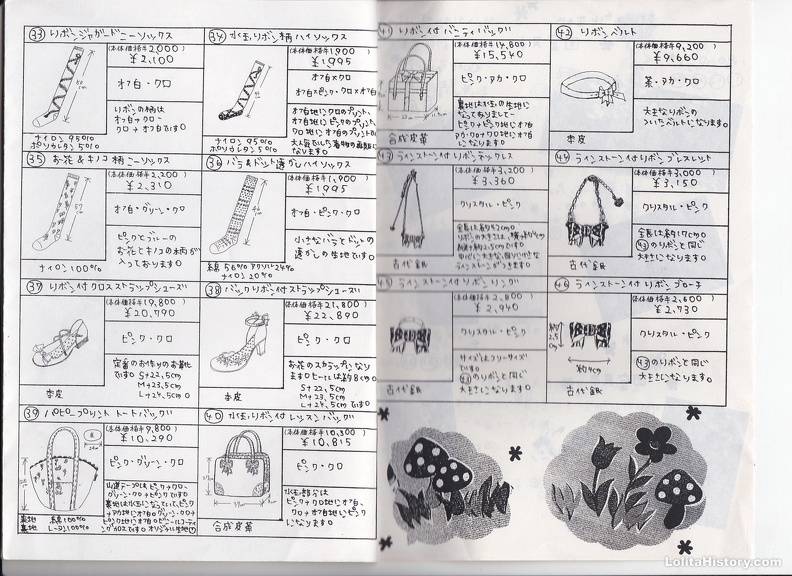 ㉝ リボンジャガードニーソックス
(本体価格￥2,000)
￥2,100
オフ白・クロ
リボンの柄は
オフ白→クロ
クロ→オフ白です。
ナイロン 95%
ポリウレタン 5%
㉞ 水玉リボン柄ハイソックス
(本体価格￥1,900)
￥1,995
オフ白×クロ
オフ白×ピンク・クロ×オフ白
オフ白地にクロのプリント、
オフ白地にピンクのプリント、
クロ地にオフ白のプリントの
なります。
ナイロン 95%
ポリウレタン 5%
㉟ お花&キノコ柄ニーソックス
(本体価格￥2,200)
￥2,310
オフ白・グリーン・クロ
ピンクとブルーの
お花とキノコの柄が
入っております。
ナイロン100%
㊱ バラ&ドット透かしハイソックス
(本体価格￥1,900)
￥1,995
オフ白・ピンク・クロ
小さなバラとドットの
透かしの生地です。
綿 56% アクリル24%
ナイロン20%
㊲ リボン付クロスストラップシューズ
(本体価格￥19,800)
￥20,790
ピンク・クロ
定番のお作りのお靴
です。S→22,5cm
M→23,5cm
L→24,5cm
本皮
㊳ バックリボン付ストラップシューズ
(本体価格￥21,800)
￥22,890
ピンク・クロ
お花のスカラップになり
ます。ヒールは約8cm
S→22,5cm
M→23,5cm
L→24,5cm
本皮
㊴ パピロープリント トートバッグ
(本体価格￥9,800)
￥10,290
ピンク・グリーン・クロ
山道テープはピンク→クロ、
グリーン・クロ→ピンクです。
表地 綿100%
裏地 レーヨン100%
㊵ 水玉リボン付レッスンバッグ
(本体価格￥10,300)
￥10,815
ピンク・クロ
水玉部分は
ピンク→クロ地にオフ白、
クロ→オフ白地にピンク
になります。
合成皮革
㊶ リボン付バニティバッグ
(本体価格￥14,800)
￥15,540
ピンク・アカ・クロ
裏地は水玉の生地に
なっておりまして
ピンク→ピンク地にオフ白
アカ・クロ→クロ地にオフ白
になります。
合成皮革
㊷ リボンベルト
(本体価格￥9,200)
￥9,660
茶・アカ・クロ
大きなリボンの
ついたベルトになります。
本皮
㊸ ラインストーン付リボンネックレス
(本体価格￥3,200)
￥3,360
クリスタル・ピンク
全長は約42cm。
古代銀
㊹ ラインストーン付リボンブレスレット
(本体価格￥3,000)
￥3,150
クリスタル・ピンク
全長は約17cm。
㊸のリボンと同じ
大きさになります。
古代銀
㊺ ラインストーン付リボンリング
(本体価格￥2,800)
￥2,940
クリスタル・ピンク
サイズはフリーサイズ
です。
㊸のリボンと同じ
大きさになります。
古代銀
㊻ ラインストーン付リボンブローチ
(本体価格￥2,600)
￥2,730
クリスタル・ピンク
約2,5cm
約4cm
㊸のリボンと同じ
大きさになります。
古代銀
LolitaHistory.com